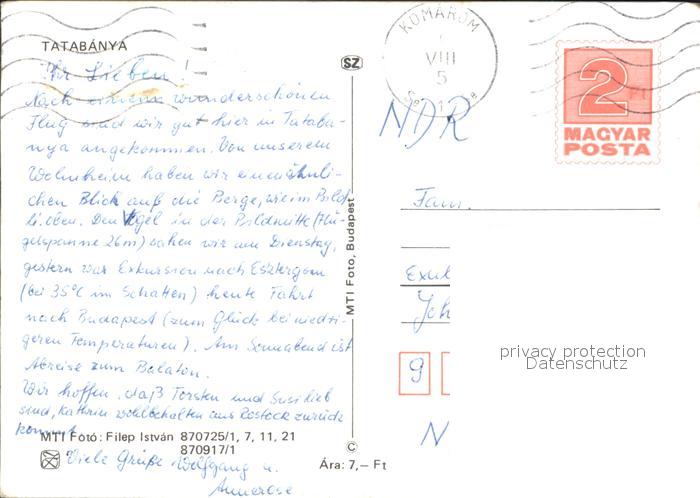 TATABÁNYA
Ihr Lieben!
Nach einem wunderschönen
Flug sind wir gut hier in Tataba-
nya angekommen. Von unserem
Wohnheim haben wir einen ähnli-
chen Blick auf die Berge, wie im Bild
li. oben. Den Vogel in der Bildmitte (Flü-
gelspanne 26m) sahen wir am Dienstag,
gestern war Exkursion nach Esztergom
(bei 35°C im Schatten) heute Fahrt
nach Budapest (zum Glück bei niedri-
geren Temperaturen). Am Sonnabend ist
Abreise zum Balaton.
Wir hoffen, daß Torsten und Susi lieb
sind, Kathrin wohlbehalten aus Rostock zurück
kommt.
MTI Fotó: Filep István 870725/1, 7, 11, 21
870917/1
Viele Grüße Wolfgang u.
Annerose
Ára: 7,– Ft
SZ
MTI Fotó, Budapest
©
KOMÁROM
VIII
5
2 Ft
MAGYAR
POSTA
NDR
Fam.
Joh
9
N
privacy protection
Datenschutz